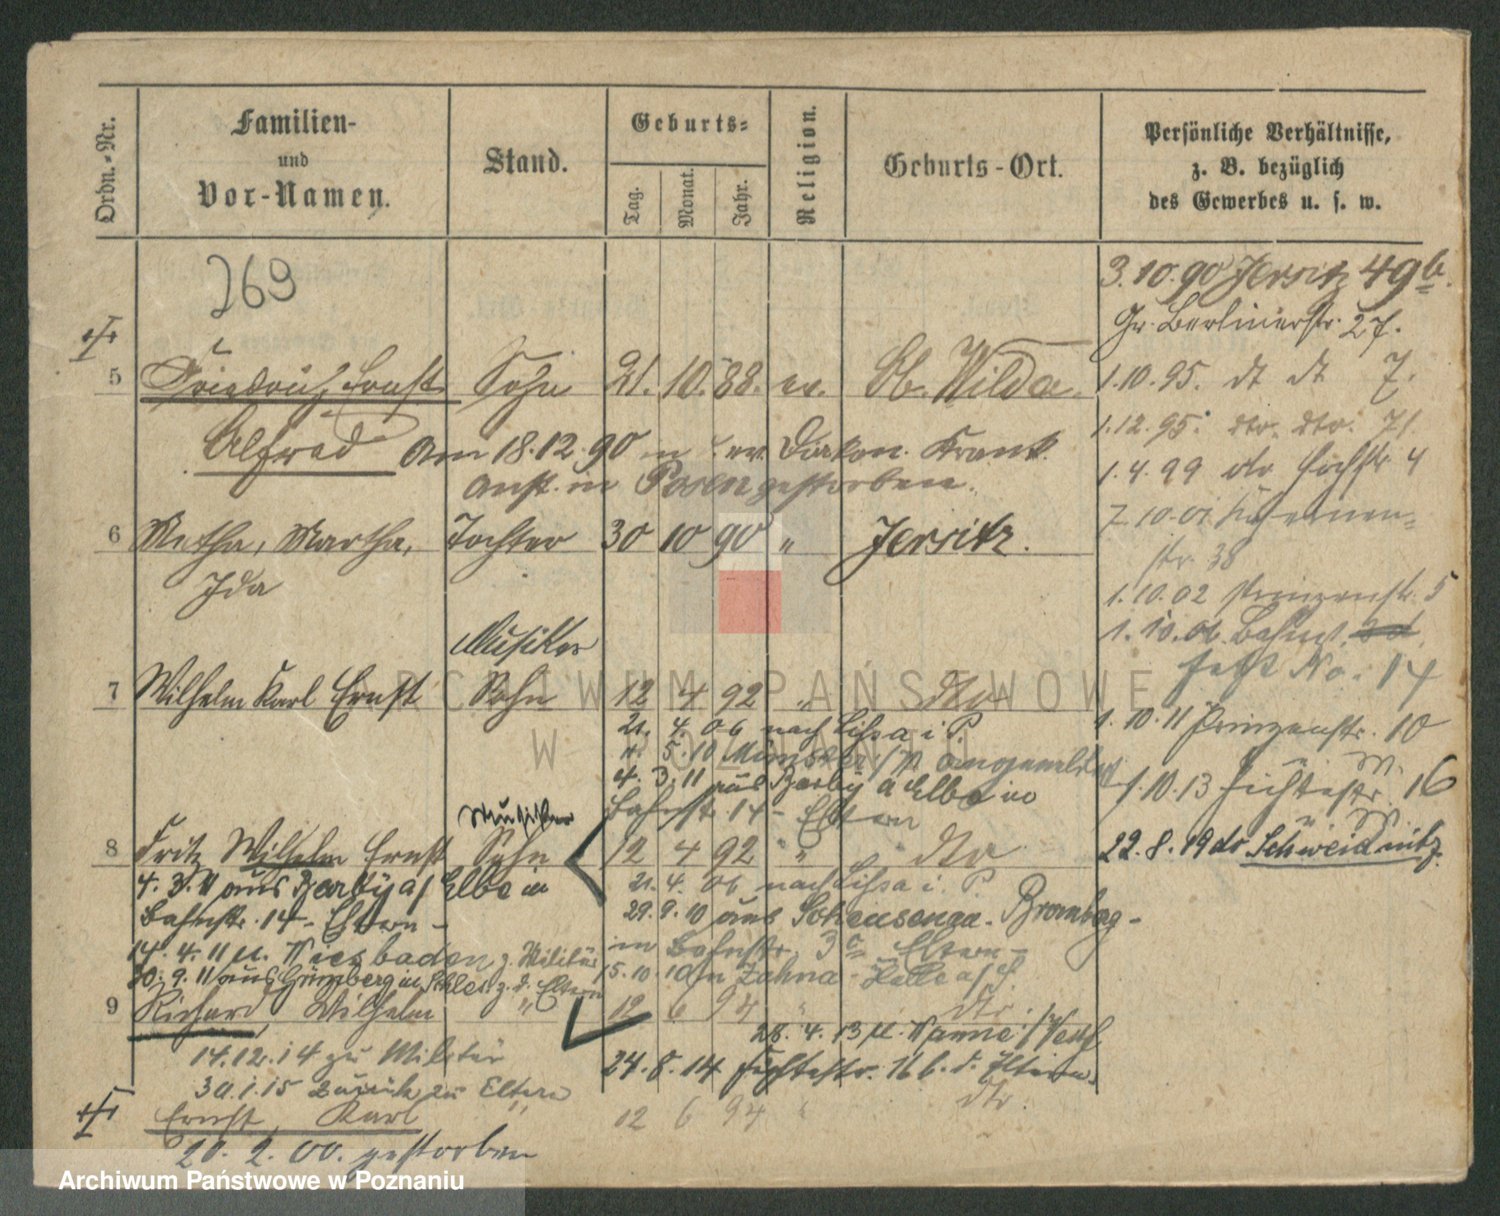 Ordn.-Nr.
Familien-
und
Vor-Namen.
Stand.
Geburts-
Tag.
Monat.
Jahr.
Religion.
Geburts-Ort.
Persönliche Verhältnisse,
z. B. bezüglich
des Gewerbes u. s. w.
769
3.10.90 Jersitz 49b.
Gr. Berlinerstr. 27.
5 Friedrich Ernst Sohn 21. 10. 88. ev. Wilda.
1.10.95. dt dt 7.
Alfred Am 18.12.90 in ev. Diakon. Krank.
1.12.95. dto. dto. 71.
Anst. in Posen gestorben.
1.4.99 dto Hochstr. 4
6 Metha, Martha, Tochter 30 10 90 " Jersitz.
str. 38
Ida
1.10.02 Prinzenstr. 5
Musiker
1.10.06 Bahnst.
jetzt No. 14
7 Wilhelm Karl Ernst Sohn 12 4 92 " dto
21. 4. 06 nach Lissa i. P.
1.10.11 Prinzenstr. 10
5.10 Münster angemeldet
4. 3. 11 aus Barby a Elbe in
1.10.13 Fichtestr. 16
Bahnstr. 14 - Eltern
Musiker
8 Fritz Wilhelm Ernst Sohn 12 4 92 " dto
22.8.19 dr Schweidnitz.
4. 3. 11 aus Barby a/ Elbe in
21. 4. 06 nach Lissa i. P.
Bahnstr. 14 - Eltern -
29. 9. 10 aus Bromberg -
14. 4. 11 n. Wiesbaden z. Militär
in Bahnstr. Eltern -
30. 9. 11 aus Grünberg in Schles. z. d. Eltern
15. 10. 10 in Zahna - Halle a/S.
9 Richard Wilhelm " 12 6 94 " dto
28. 4. 13 n. Wanne /Westf
14.12.14 zu Militär
24. 8. 14 Fichtestr. 16 b. d. Eltern.
30.1.15 zurück zu Eltern
Ernst, Karl 12 6 94 " dto
20. 2. 00. gestorben
ARCHIWUM PAŃSTWOWE
W POZNANIU
Archiwum Państwowe w Poznaniu